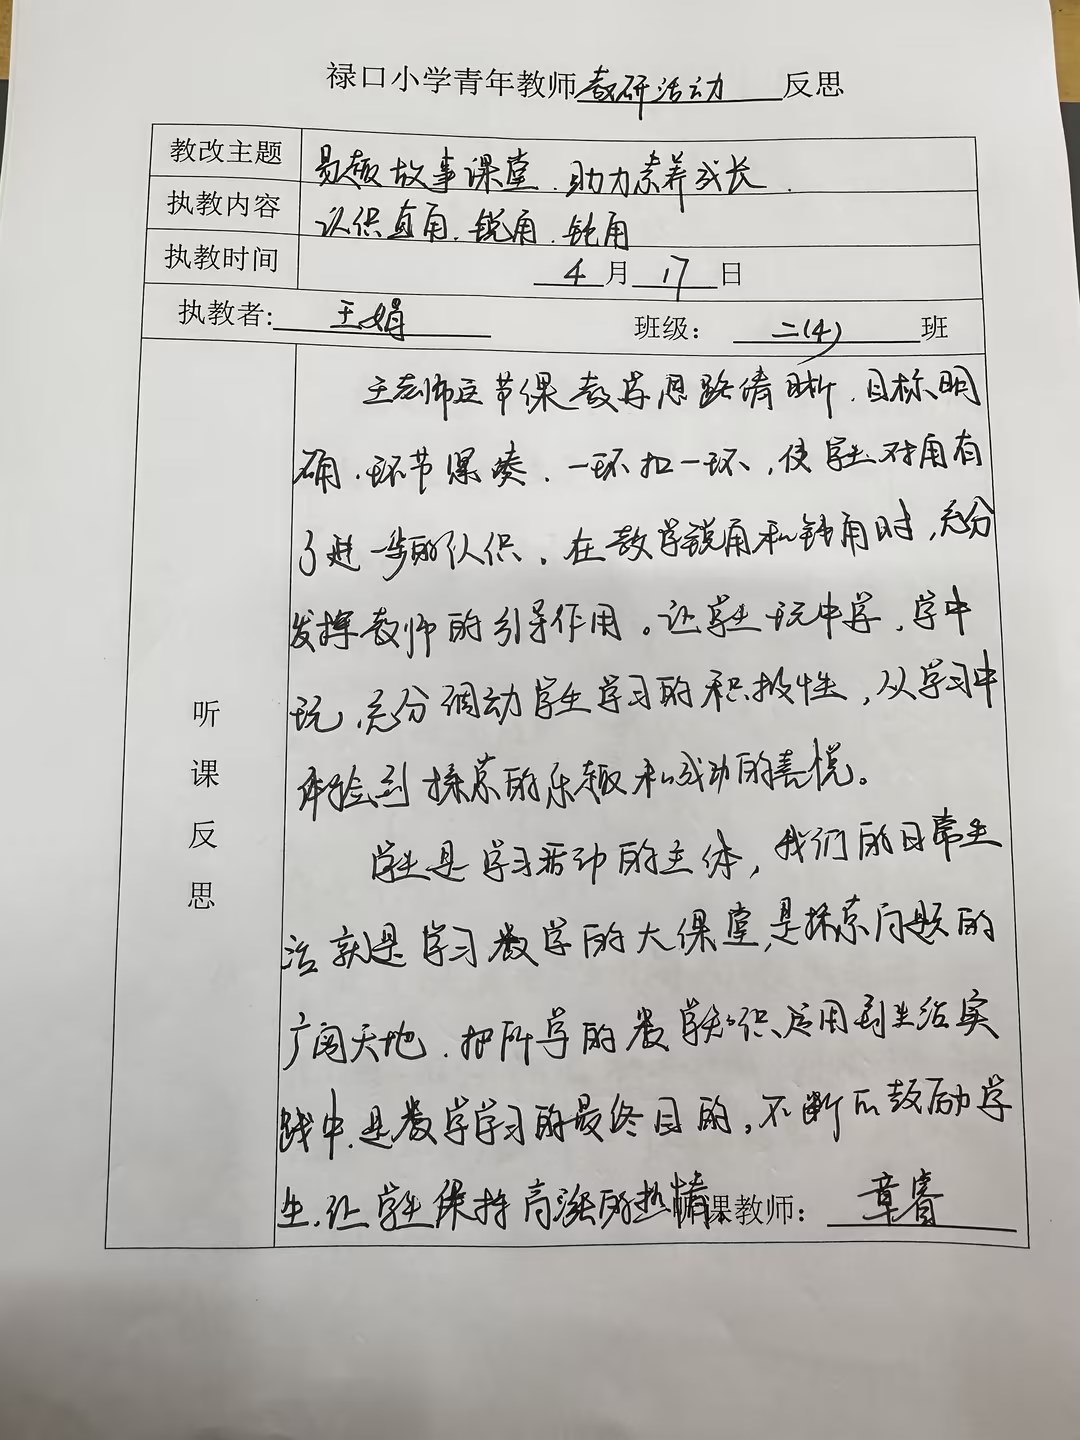 禄口小学青年教师教研活动反思
教改主题 易趣故事课堂.助力素养成长.
执教内容 认识直角.锐角.钝角
执教时间 4月17日
执教者: 王娟 班级: 二(4)班
听课反思
王老师这节课教学思路清晰.目标明
确.环节紧凑.一环扣一环,使学生对角有
了进一步的认识。在教学锐角和钝角时,充分
发挥教师的引导作用。让学生玩中学,学中
玩,充分调动学生学习的积极性,从学习中
体验到探索的乐趣和成功的喜悦。
学生是学习活动的主体,我们的日常生
活就是学习数学的大课堂,是探索问题的
广阔天地.把所学的数学知识运用到生活实
践中.是数学学习的最终目的,不断鼓励学
生.让学生保持高涨的热情
听课教师: 章睿